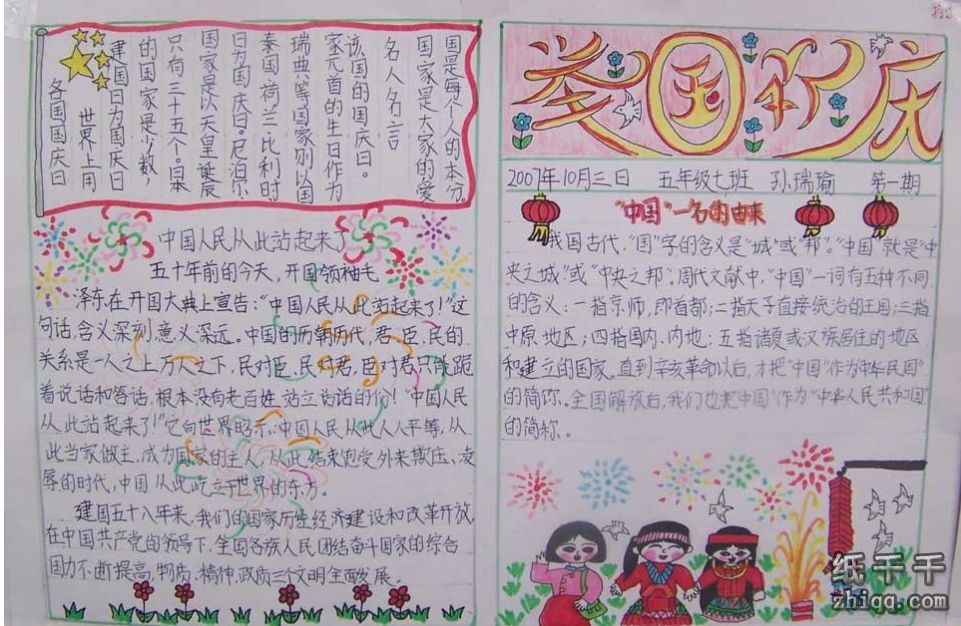 各国国庆日
世界上用
建国日为国庆日
的国家是少数，
只有三十五个。日本
国家是以天皇诞辰
日为国庆日。尼泊尔
泰国、荷兰、比利时
瑞典等国家则以国
家元首的生日作为
该国的国庆日。
名人名言
国家是大家的爱
国是每个人的本分。
中国人民从此站起来了
五十年前的今天，开国领袖毛
泽东在开国大典上宣告："中国人民从此站起来了！"这
句话，含义深刻，意义深远。中国的历朝历代，君、臣、民的
关系是一人之上万人之下，民对臣、民对君，臣对君只能跪
着说话和答话，根本没有老百姓站立说话的份！"中国人民
从此站起来了！"它向世界昭示：中国人民从此人人平等，从
此当家做主，成为国家的主人，从此结束饱受外来欺压、凌
辱的时代，中国从此屹立于世界的东方。
建国五十八年来，我们的国家历经经济建设和改革开放，
在中国共产党的领导下，全国各族人民团结奋斗国家的综合
国力不断提高，物质、精神、政质三个文明全面发展。
举国欢庆
2007年10月三日 五年级七班 孙瑞瑜 第一期
"中国"一名的由来
我国古代，"国"字的含义是"城"或"邦"。"中国"就是"中
央之城"或"中央之邦"。周代文献中，"中国"一词有五种不同
的含义：一指京师，即首都；二指天子直接统治的王国；三指
中原地区；四指国内、内地；五指诸夏或汉族居住的地区
和建立的国家。直到辛亥革命以后，才把"中国"作为"中华民国"
的简称。全国解放后，我们也把"中国"作为"中华人民共和国"
的简称。
纸千千
zhiqq.com